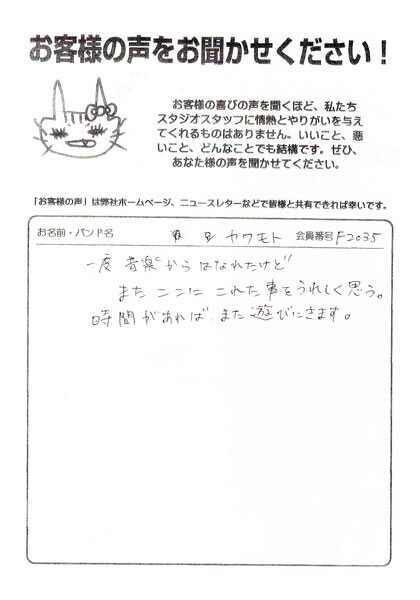 お客様の声をお聞かせください！
お客様の喜びの声を聞くほど、私たち
スタジオスタッフに情熱とやりがいを与え
てくれるものはありません。いいこと、悪
いこと、どんなことでも結構です。ぜひ、
あなた様の声を聞かせてください。
「お客様の声」は弊社ホームページ、ニュースレターなどで皆様と共有できれば幸いです。
お名前・バンド名 カワモト 会員番号 F2035
一度 音楽からはなれたけど
また ココに これた事をうれしく思う。
時間があれば また 遊びにきます。